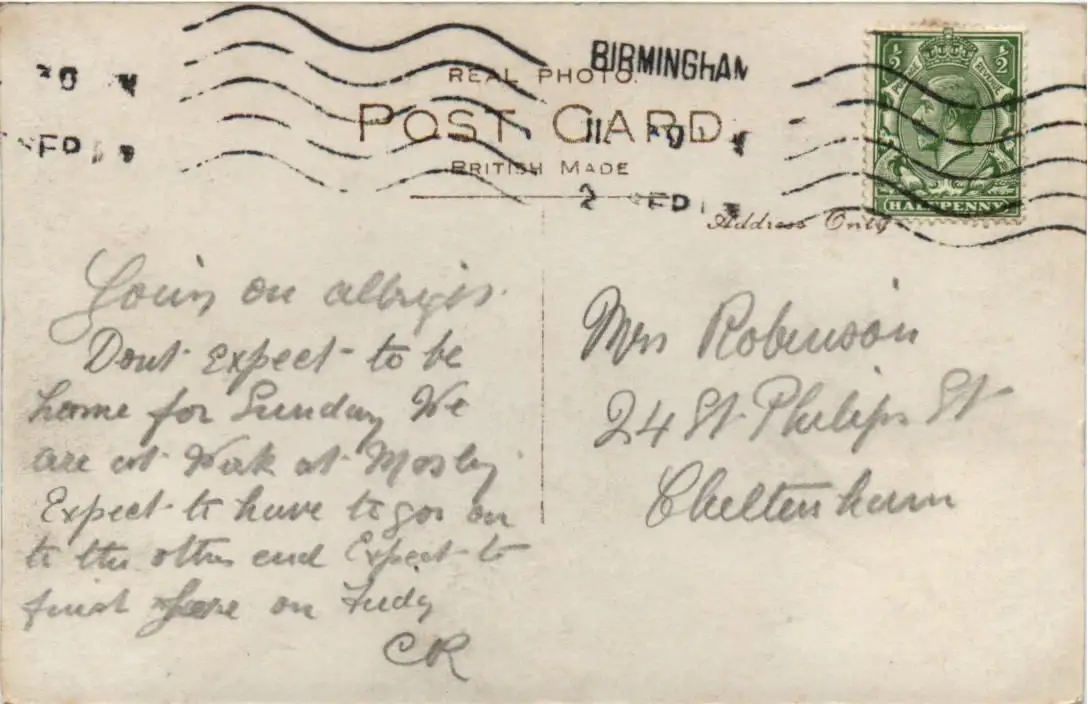 BIRMINGHAM
REAL PHOTO.
POST CARD
BRITISH MADE
Address Only
1/2 1/2
HALFPENNY
Goin on allright.
Dont Expect to be
home for Sunday We
are at Work at Mosley
Expect to have to go on
to the other end Expect to
finish here on Fridy
CR
Mrs Robinson
24 St Philips St
Cheltenham